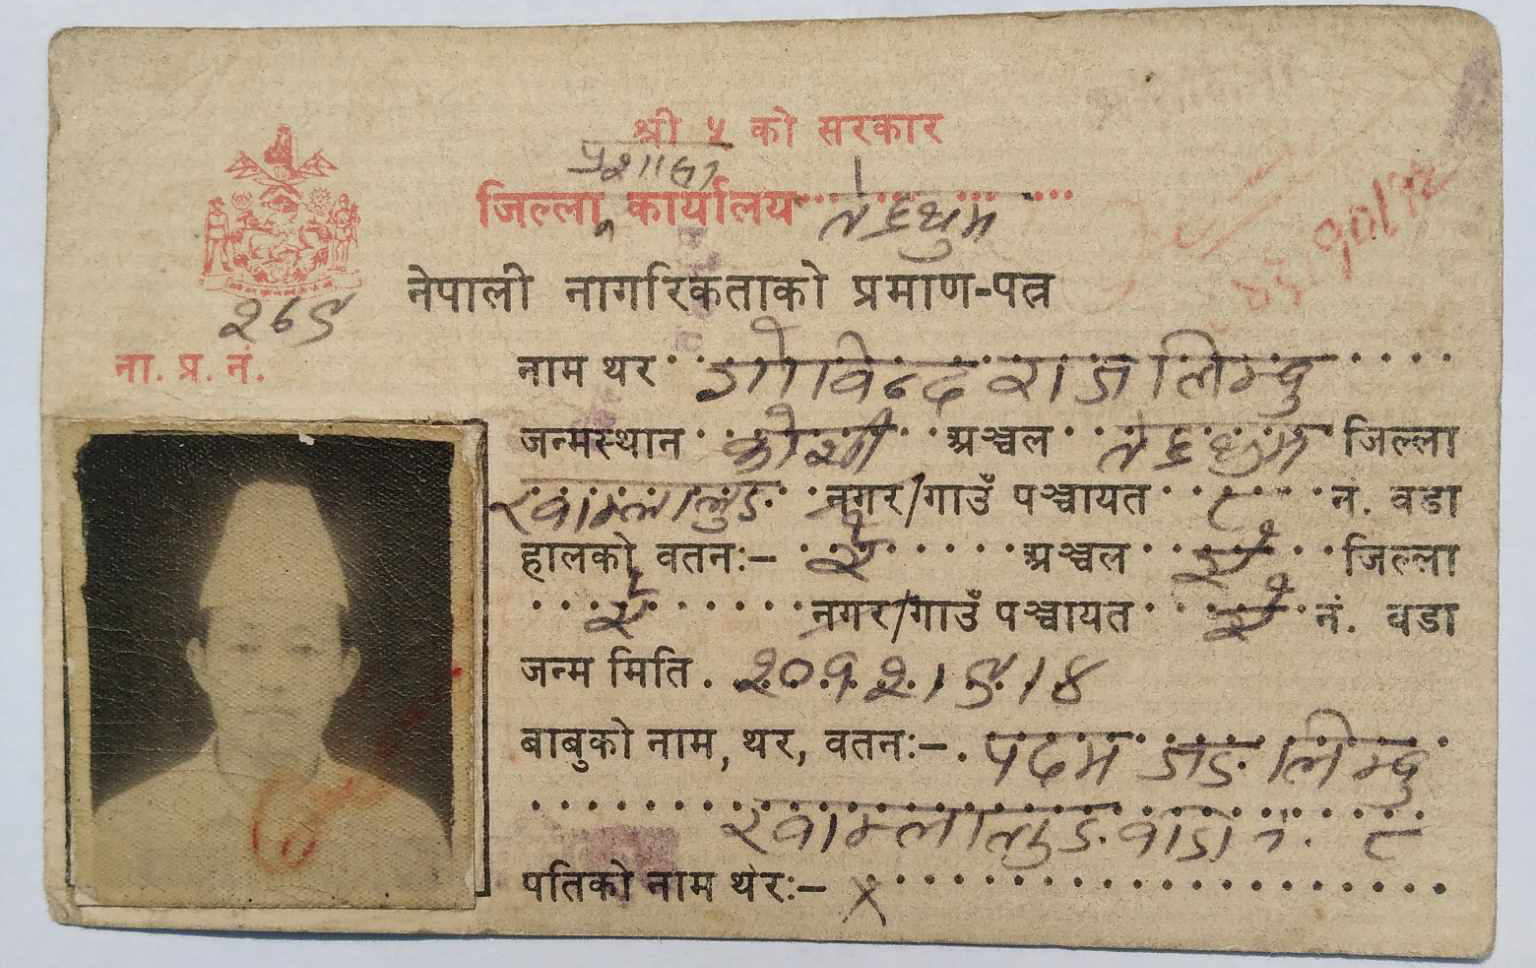 श्री ५ को सरकार
प्रशासन
जिल्ला कार्यालय तेह्रथुम
नेपाली नागरिकताको प्रमाण-पत्र
२६९
ना. प्र. नं.
नाम थर गोविन्द राज लिम्बु
जन्मस्थान कोशी अञ्चल तेह्रथुम जिल्ला
खाम्लालुङ नगर/गाउँ पञ्चायत ८ नं. वडा
हालको वतन:- ऐ अञ्चल ऐ जिल्ला
ऐ नगर/गाउँ पञ्चायत ऐ नं. वडा
जन्म मिति. २०१२।९।४
बाबुको नाम, थर, वतन:-. पदम जङ लिम्बु
खाम्लालुङ वडा नं. ८
पतिको नाम थर:- X